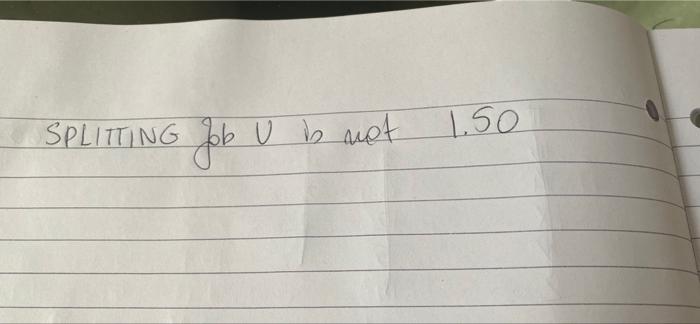 SPLITTING Job U is not 1.50